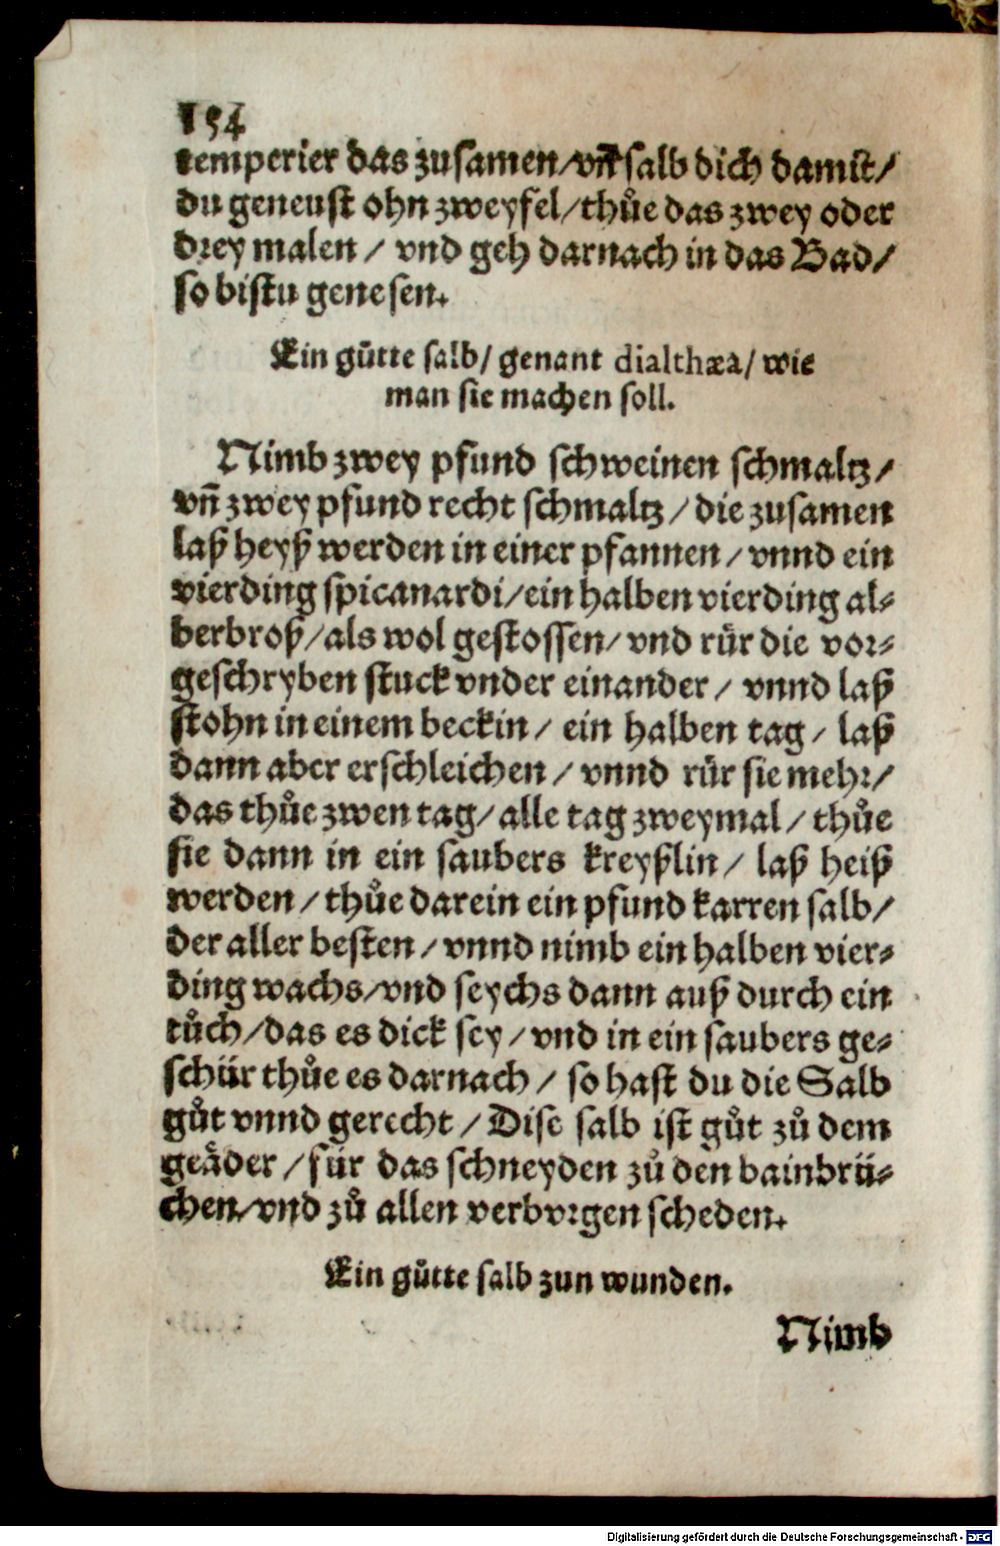 154
temperier das zusamen/vn̄ salb dich damit/
du geneust ohn zweyfel/thůe das zwey oder
drey malen/ vnd geh darnach in das Bad/
so bistu genesen.
Ein gůtte salb/ genant dialthæa/ wie
man sie machen soll.
Nimb zwey pfund schweinen schmaltz/
vn̄ zwey pfund recht schmaltz/ die zusamen
laß heyß werden in einer pfannen/ vnnd ein
vierding spicanardi/ein halben vierding al-
berbroß/als wol gestossen/ vnd rür die vor-
geschryben stuck vnder einander/ vnnd laß
stohn in einem beckin/ ein halben tag/ laß
dann aber erschleichen/ vnnd rür sie mehr/
das thůe zwen tag/ alle tag zweymal/ thůe
sie dann in ein saubers kreyßlin/ laß heiß
werden/ thůe darein ein pfund karren salb/
der aller besten/ vnnd nimb ein halben vier-
ding wachs/vnd seychs dann auß durch ein
tůch/das es dick sey/ vnd in ein saubers ge-
schür thůe es darnach/ so hast du die Salb
gůt vnnd gerecht/ Dise salb ist gůt zů dem
geäder/ für das schneyden zů den bainbrü-
chen/vnd zů allen verborgen scheden.
Ein gůtte salb zun wunden.
Nimb
Digitalisierung gefördert durch die Deutsche Forschungsgemeinschaft - DFG